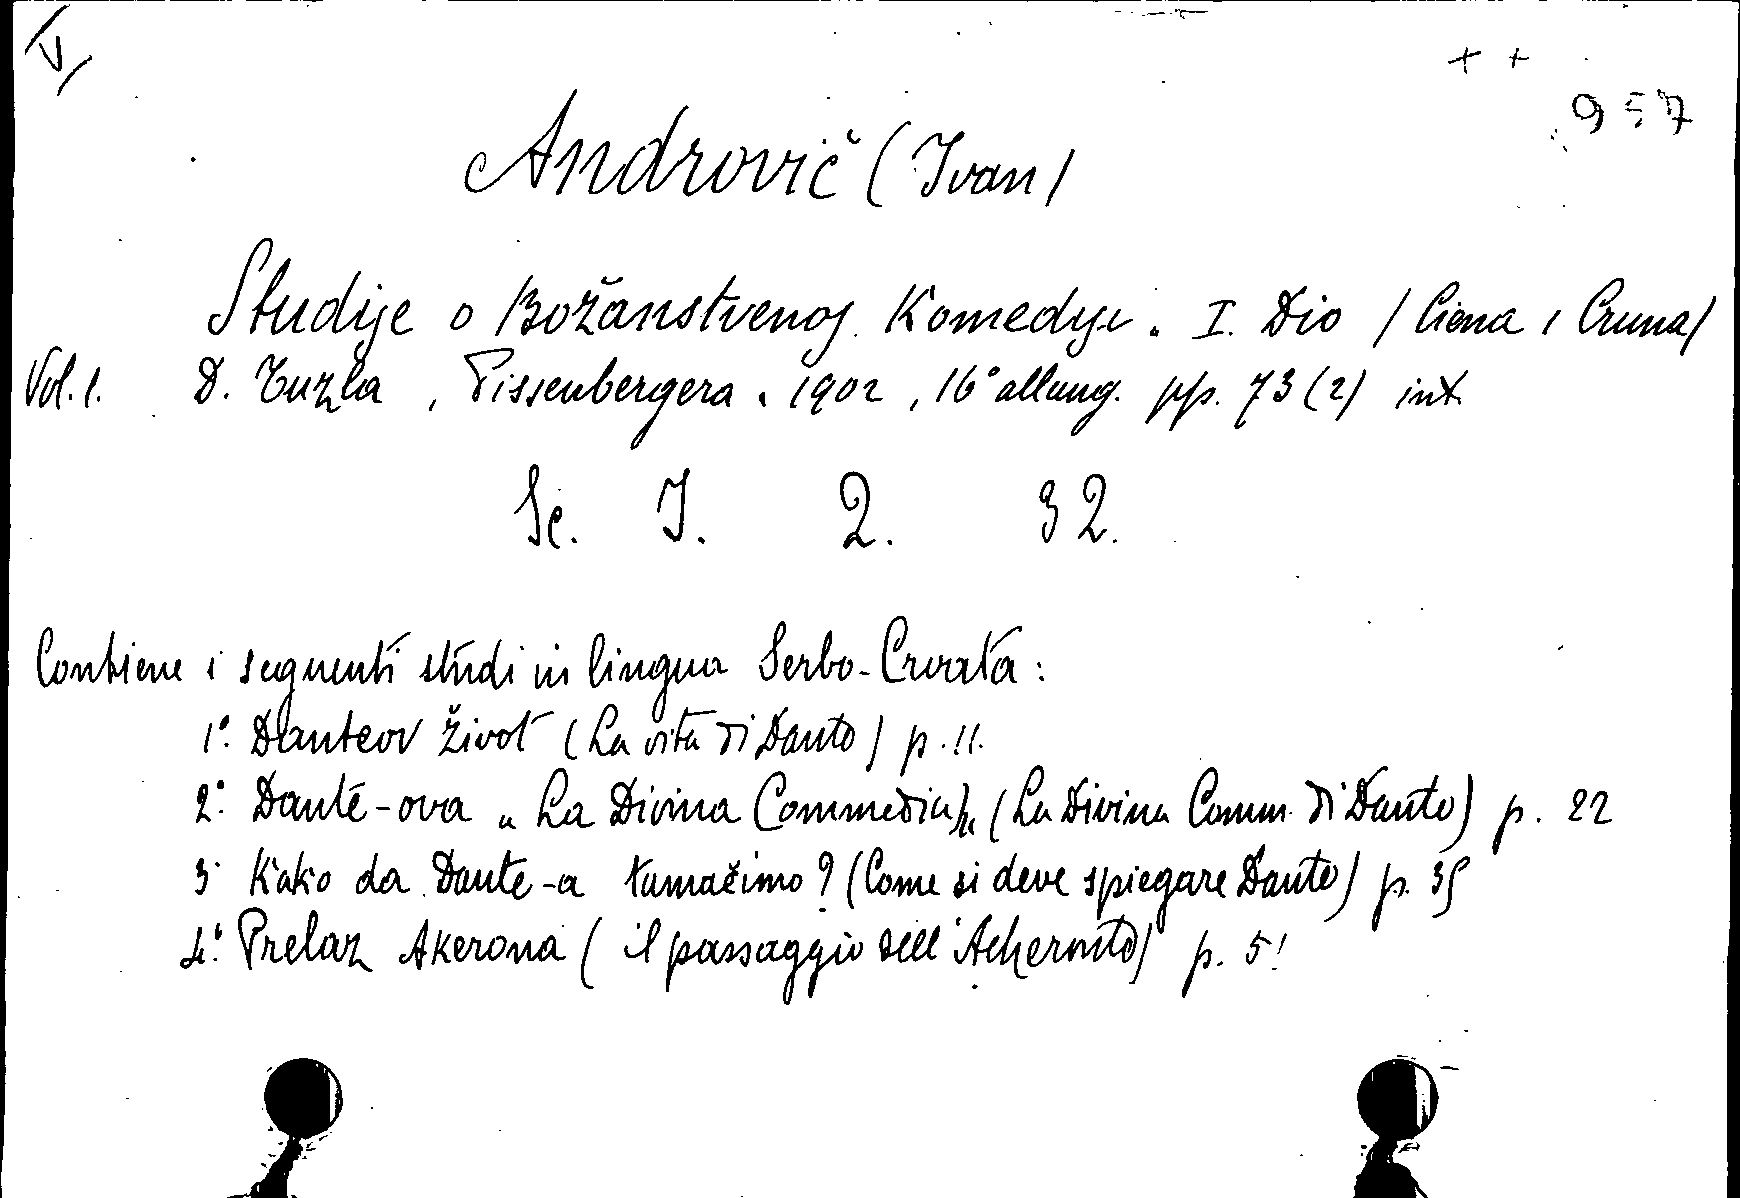 V
+ +
957
Androvič (Ivan)
Studije o Božanstvenoj Komediji. I. Dio / Ciena 1 Cruna /
Vol. 1. D. Tuzla, Pissenbergera. 1902, 16° allung. pp. 73 (2) int
Sc. I. 2. 32.
Contiene i seguenti studi in lingua Serbo-Croata:
1°. Danteov život (La vita di Dante) p. 11.
2°. Dante-ova "La Divina Commedia" (La Divina Comm. di Dante) p. 22
3. Kako da Dante-a tumačimo? (Come si deve spiegare Dante) p. 35
4°. Prelaz Akerona (il passaggio dell'Acheronte) p. 51